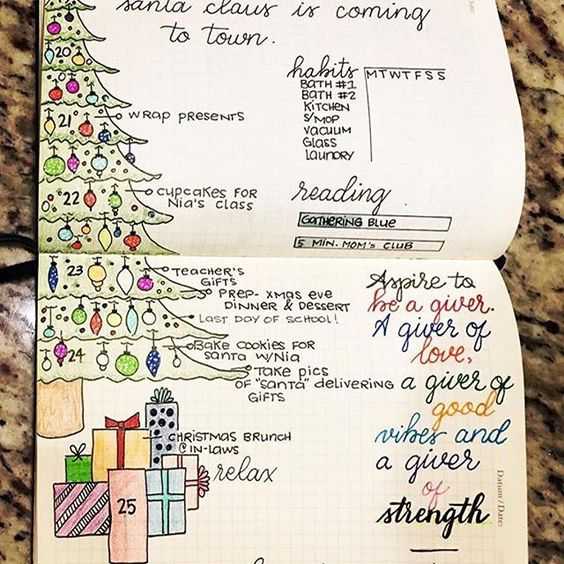 santa claus is coming
to town.
habits MTWTFSS
BATH #1
BATH #2
KITCHEN
S/MOP
VACUUM
GLASS
LAUNDRY
20
21
WRAP PRESENTS
22
CUPCAKES FOR
NIA'S CLASS
reading
GATHERING BLUE
5 MIN. MOM'S CLUB
23
TEACHER'S
GIFTS
PREP- XMAS EVE
DINNER & DESSERT
LAST DAY OF SCHOOL!
24
BAKE COOKIES FOR
SANTA W/NIA
TAKE PICS
OF "SANTA" DELIVERING
GIFTS
CHRISTMAS BRUNCH
@IN-LAWS
relax
25
Aspire to
be a giver.
A giver of
love,
a giver of
good
vibes and
a giver
of
strength
Datum / Date: